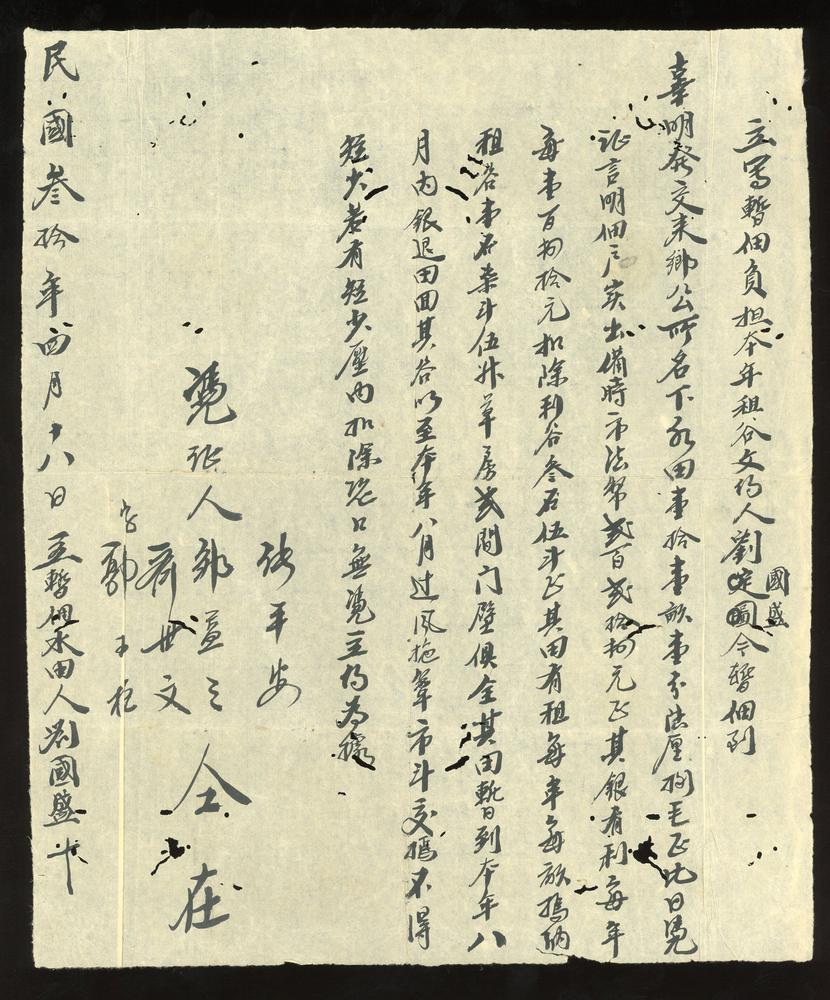 立寫暫佃負担本年租谷文約人劉國盛今暫佃到
辜明發交来鄉公所名下永田壹拾壹畝壹分陸厘捌毛正比日憑
証言明佃戶実出備時市法幣貳百貳拾捌元正其銀有利每年
每壹百捌拾元扣除利谷叁石伍斗正其田有租每年每畝摃納
租谷壹石柒斗伍升草房貳間門壁俱全其田暫到本年八
月内銀退田囬其谷以至本年八月过風拖篩市斗交摃不得
短少若有短少壓内扣除恐口無憑立約為據
張平安
憑証人鄒益之
齊世文 仝在
字郭子柱
民國叁拾年四月十八日立暫佃水田人劉國盛十